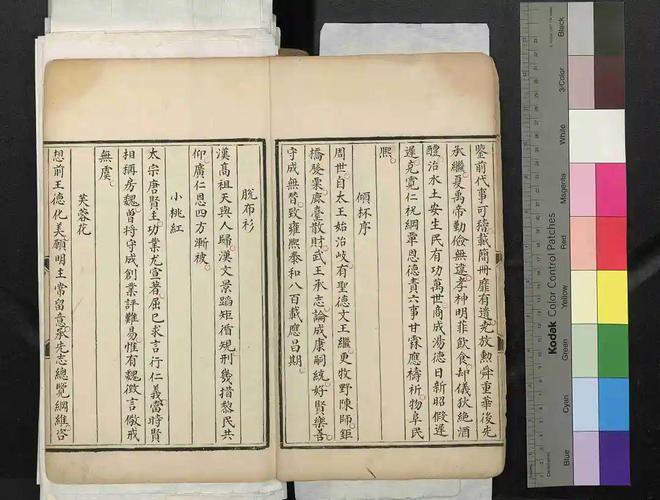 鑒前代事可稽載簡冊靡有遺堯放勲舜重華後先
承繼夏禹帝勤儉無違孝神明菲飲食却儀狄絶酒
醴治水土安生民有功萬世商成湯德日新昭假遲
遲克寛仁祝網覃恩德責六事甘霖應禱祈物阜民
熙
傾杯序
周世自太王始治岐有聖德文王繼更牧野陳師鉅
橋發粟鹿臺散財武王承志論成康嗣統好賢樂善
守成無咎致雍熙泰和八百載應昌期
脫布衫
漢高祖天與人歸漢文景蹈矩循規刑幾措黎民共
仰廣仁恩四方漸被
小桃紅
太宗唐賢主功業尤宣著屈己求言行仁義當時賢
相稱房魏曽將守成創業評難易惟有魏徴言儆戒
無虞
芙蓉花
想前王德化美願明主常留意承先志總覽綱維咨
Kodak Color Control Patches
Black
3/Color
White
Magenta
Red
Yellow
Green
Cyan
Blue